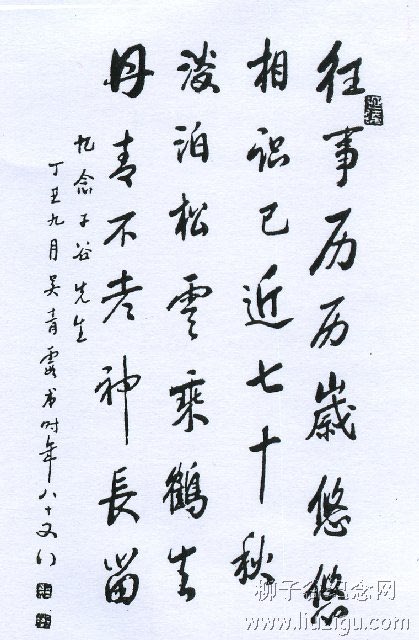 往事历历歲悠悠
相识已近七十秋
淡泊松雲乘鶴去
丹青不老神長留
忆念子谷先生
丁丑九月吴青霞书时年八十又八
柳子谷纪念网
www.liuzigu.com